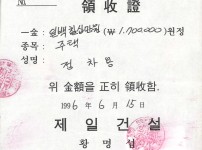 領收證
一金: 일백칠십만원 (₩ 1,700,000) 원정
종목: 주택
성명: 정차용
위 金額을 正히 領收함.
1996年 6月 15日
제일건설
황명섭